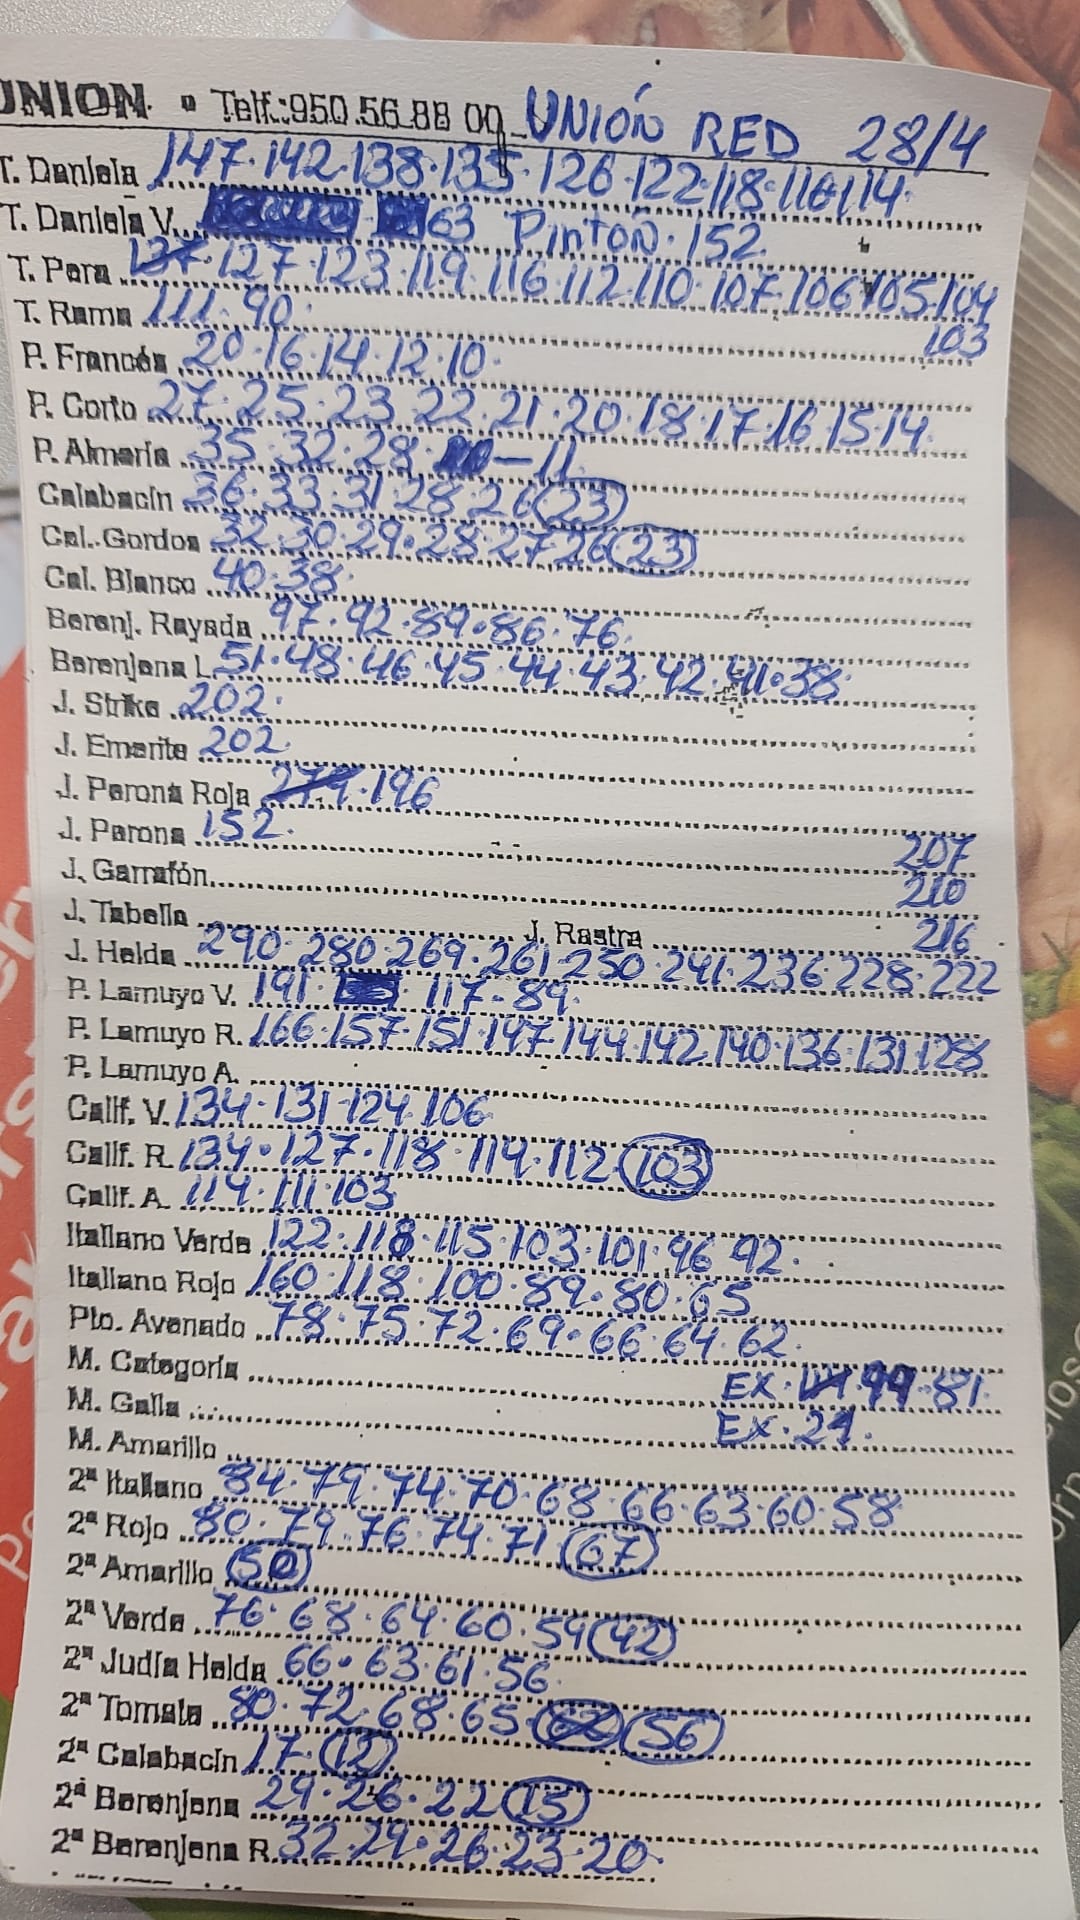 UNION. • Telf.:950.56.88 00 UNIÓN RED 28/4
T. Daniela 147·142·138·135·126·122·118·116·114·
T. Daniela V. 63 Pintón·152
T. Pera 137·127·123·119·116·112·110·107·106·105·104
T. Rama 111·90· 103
P. Francés 20·16·14·12·10·
P. Corto 27·25·23·22·21·20·18·17·16·15·14
P. Almería 35·32·28· —11
Calabacín 36·33·31·28·26 (23)
Cal. Gordos 32·30·29·28·27·26 (23)
Cal. Blanco 40·38·
Berenj. Rayada 97·92·89·86·76·
Berenjena L. 51·48·46·45·44·43·42·41·38·
J. Strike 202·
J. Emerite 202·
J. Perona Roja 274·196
J. Perona 152· 207
J. Garrafón 210
J. Tabella J. Rastra 216
J. Helda 290·280·269·261·250·241·236·228·222
P. Lamuyo V. 191· ·117·89·
P. Lamuyo R. 166·157·151·147·144·142·140·136·131·128
P. Lamuyo A.
Calif. V. 134·131·124·106
Calif. R. 134·127·118·114·112 (103)
Calif. A. 114·111·103
Italiano Verde 122·118·115·103·101·96·92·
Italiano Rojo 160·118·100·89·80·65
Pto. Avenado 78·75·72·69·66·64·62·
M. Categoría EX· 99·81·
M. Galia EX·29·
M. Amarillo
2ª Italiano 84·79·74·70·68·66·63·60·58
2ª Rojo 80·79·76·74·71 (67)
2ª Amarillo (50)
2ª Verde 76·68·64·60·59 (42)
2ª Judía Helda 66·63·61·56·
2ª Tomate 80·72·68·65· (62) (56)
2ª Calabacín 17·(12)
2ª Berenjena 29·26·22 (15)
2ª Berenjena R. 32·29·26·23·20·